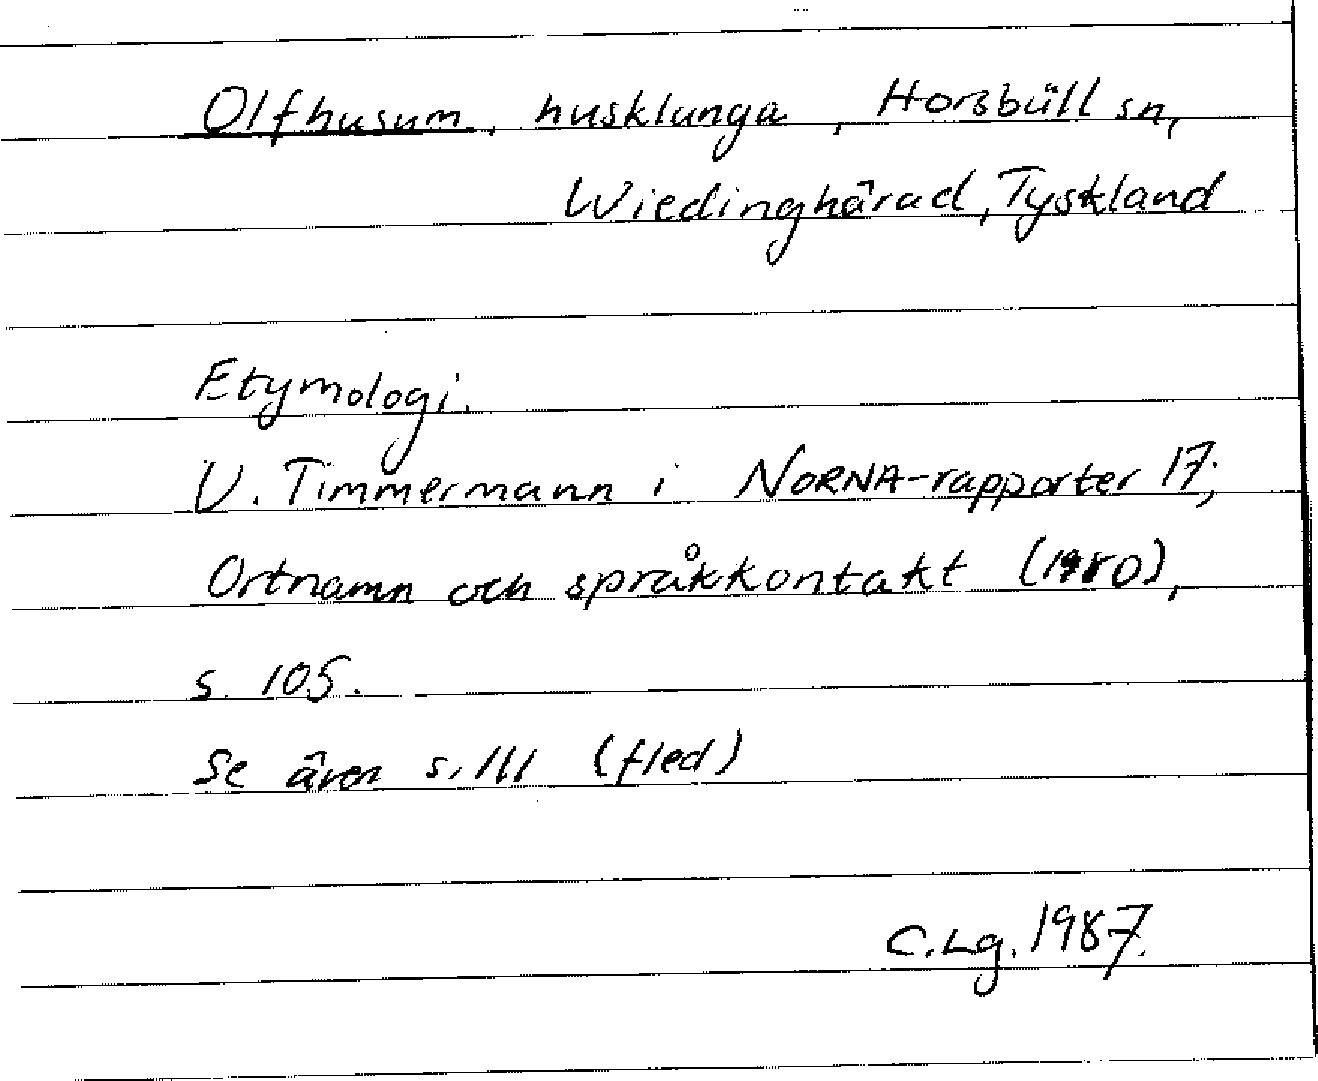 Olfhusum, husklunga, Horsbüll sn,
Wiedinghärad, Tyskland
Etymologi.
U. Timmermann i NORNA-rapporter 17;
Ortnamn och språkkontakt (1980),
s. 105.
Se även s. 111 (fled)
C.Lg. 1987.